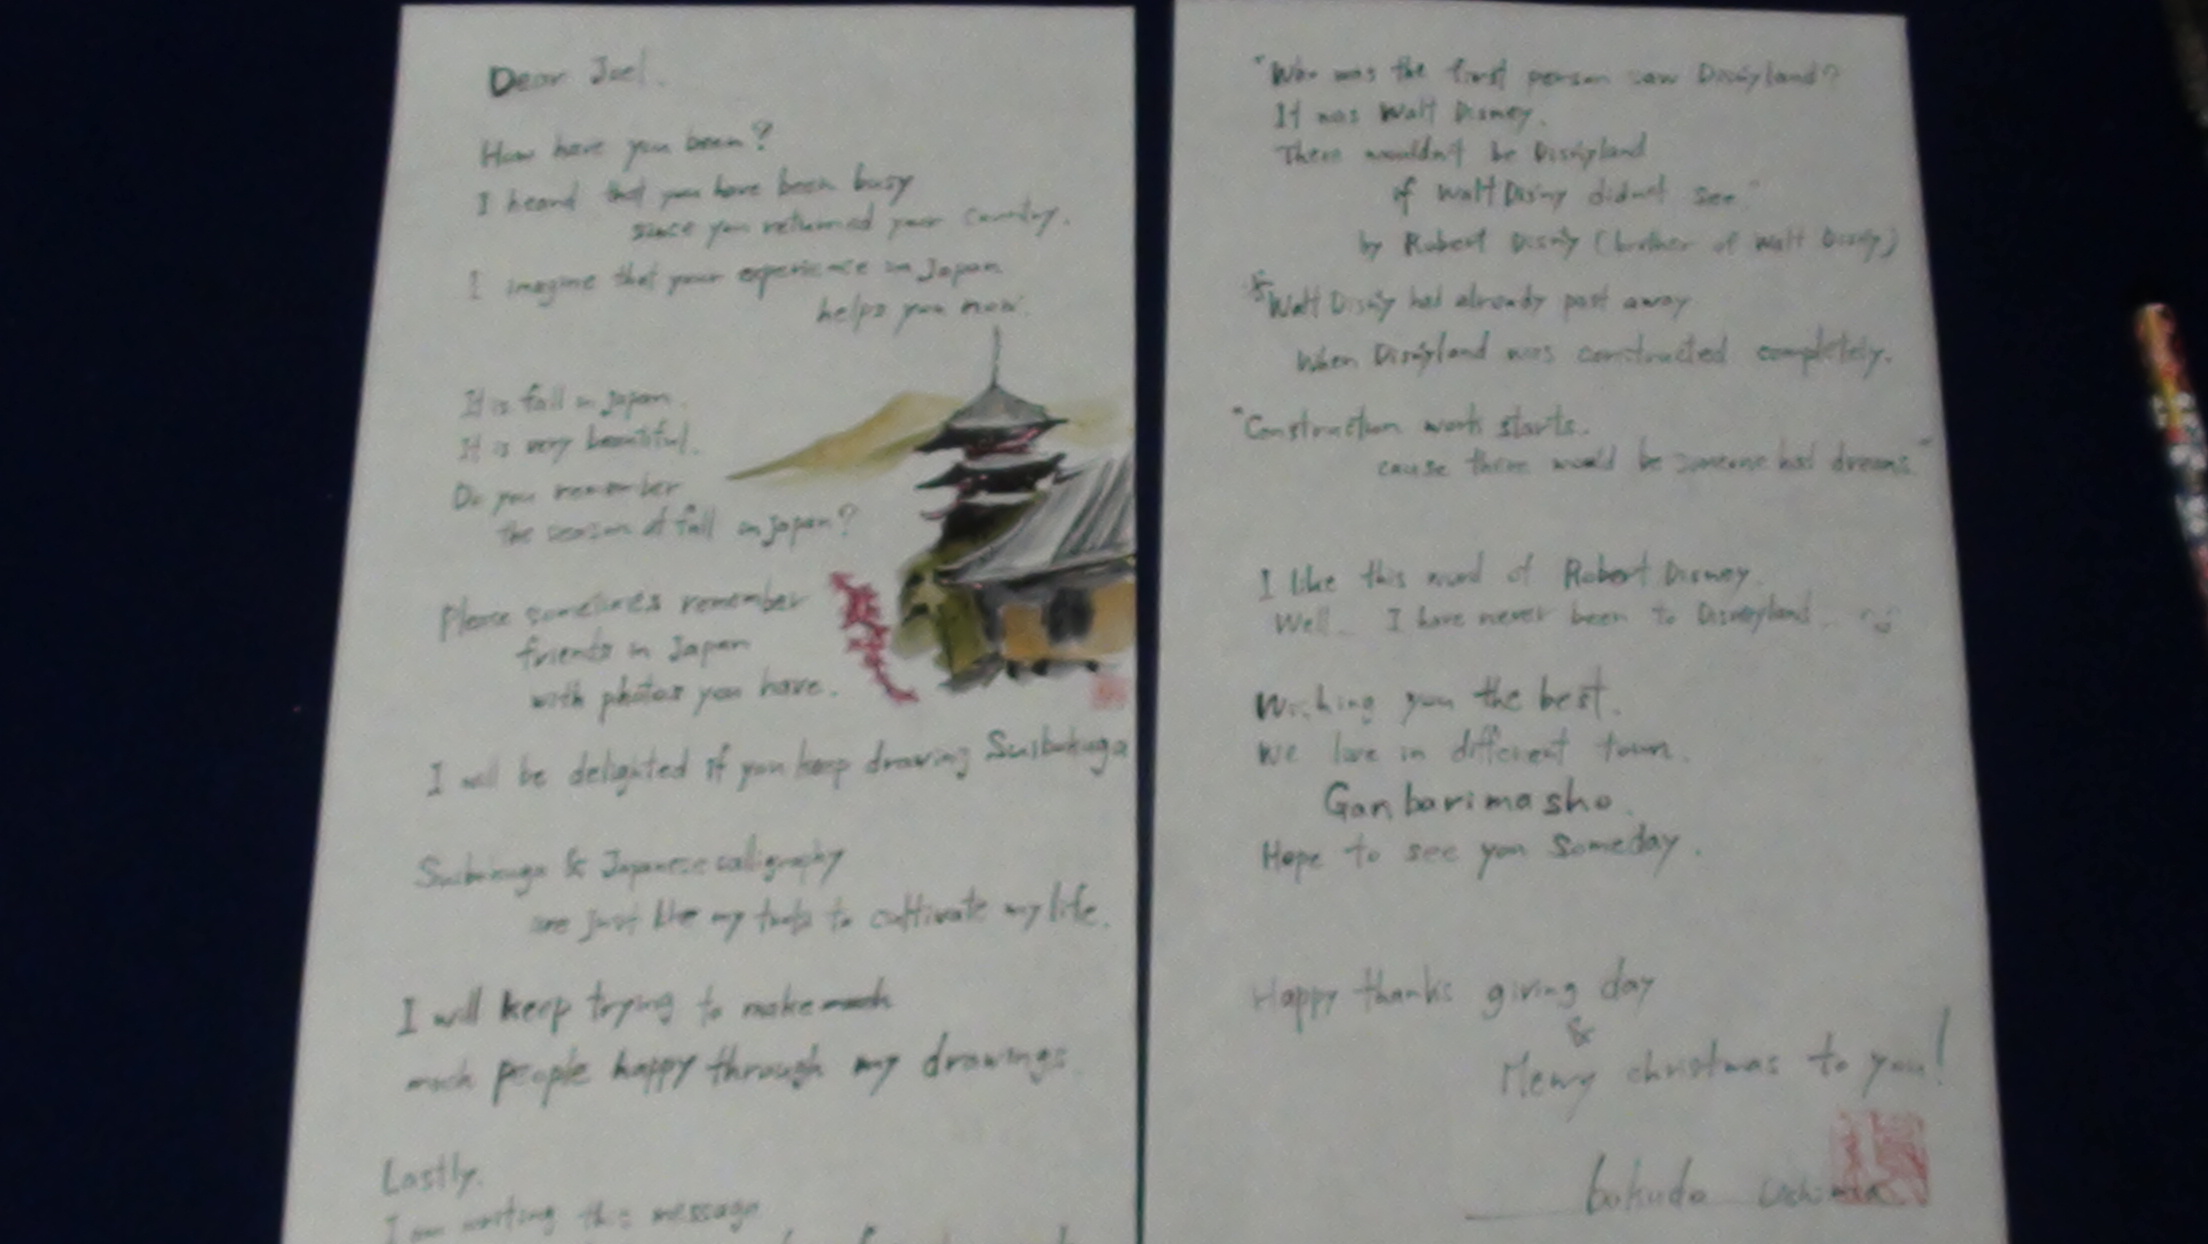 Dear Joel.
How have you been?
I heard that you have been busy
since you returned your country.
I imagine that your experience in Japan
helps you now.
It is fall in Japan.
It is very beautiful.
Do you remember
the season of fall in Japan?
Please sometimes remember
friends in Japan
with photos you have.
I will be delighted if you keep drawing Suibokuga
Suibokuga & Japanese calligraphy
are just like my tools to cultivate my life.
I will keep trying to make much
much people happy through my drawings.
Lastly.
I am writing this message
"Who was the first person saw Disnyland?
It was Walt Disney.
There wouldn't be Disnyland
if Walt Disny didn't see"
by Robert Disny (brother of Walt Disny)
Walt Disny had already past away
When Disnyland was constructed completely.
"Construction work starts.
cause there would be someone had dreams."
I like this word of Robert Disney.
Well... I have never been to Disneyland...
Wishing you the best.
We live in different town.
Ganbarimasho.
Hope to see you someday.
Happy thanks giving day
&
Merry christmas to you!
bokudo